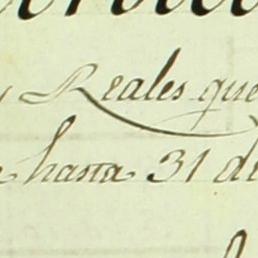 y Reales que
hasta 31 de